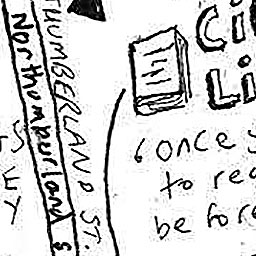 THUMBERLAND ST.
Northumberland S
Ci
Li
'once y
to rea
be fore